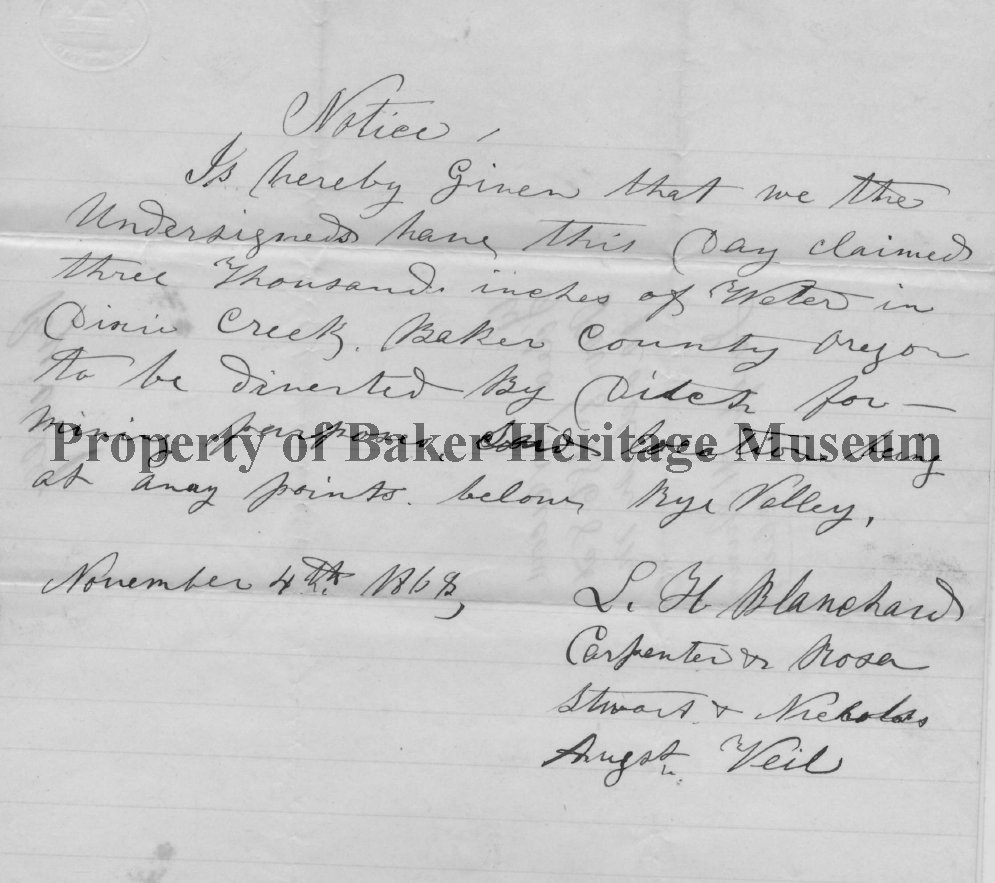 Notice,
Is hereby Given that we the
Undersigneds have this Day claimed
three Thousand inches of Water in
Dixie Creek, Baker County Oregon
to be diverted By Ditch for—
mining purposes, said location being
Property of Baker Heritage Museum
at anay points. below Rye Valley,
November 4th. 1868,
L. H Blanchard
Carpenter & Rosa
Stwart. & Nicholas
Augst. Veil